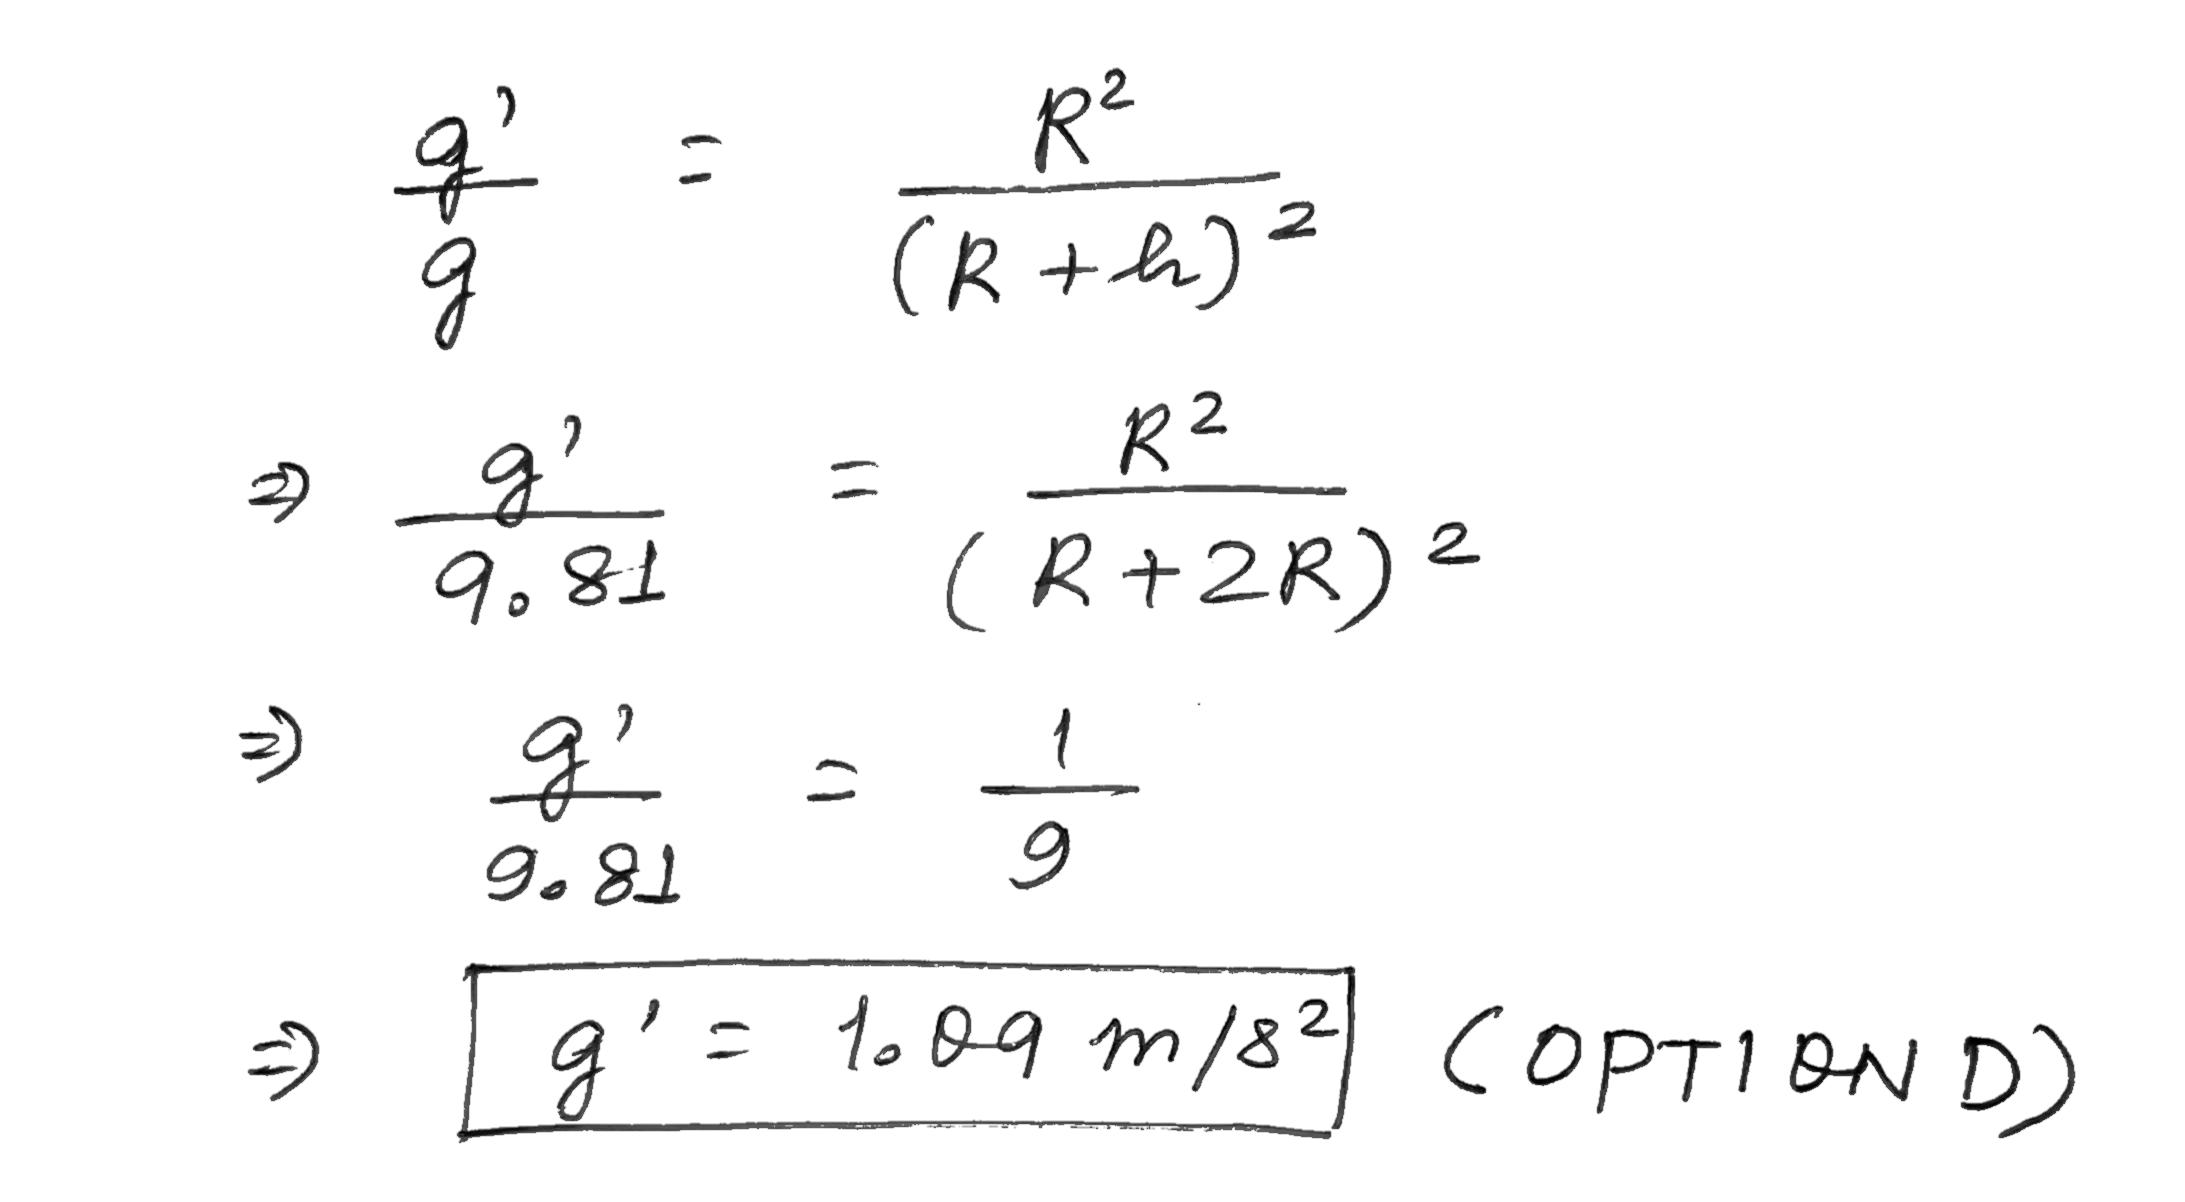 g'/g = R²/(R+h)²
⇒ g'/9.81 = R²/(R+2R)²
⇒ g'/9.81 = 1/9
⇒ g' = 1.09 m/s² (OPTION D)